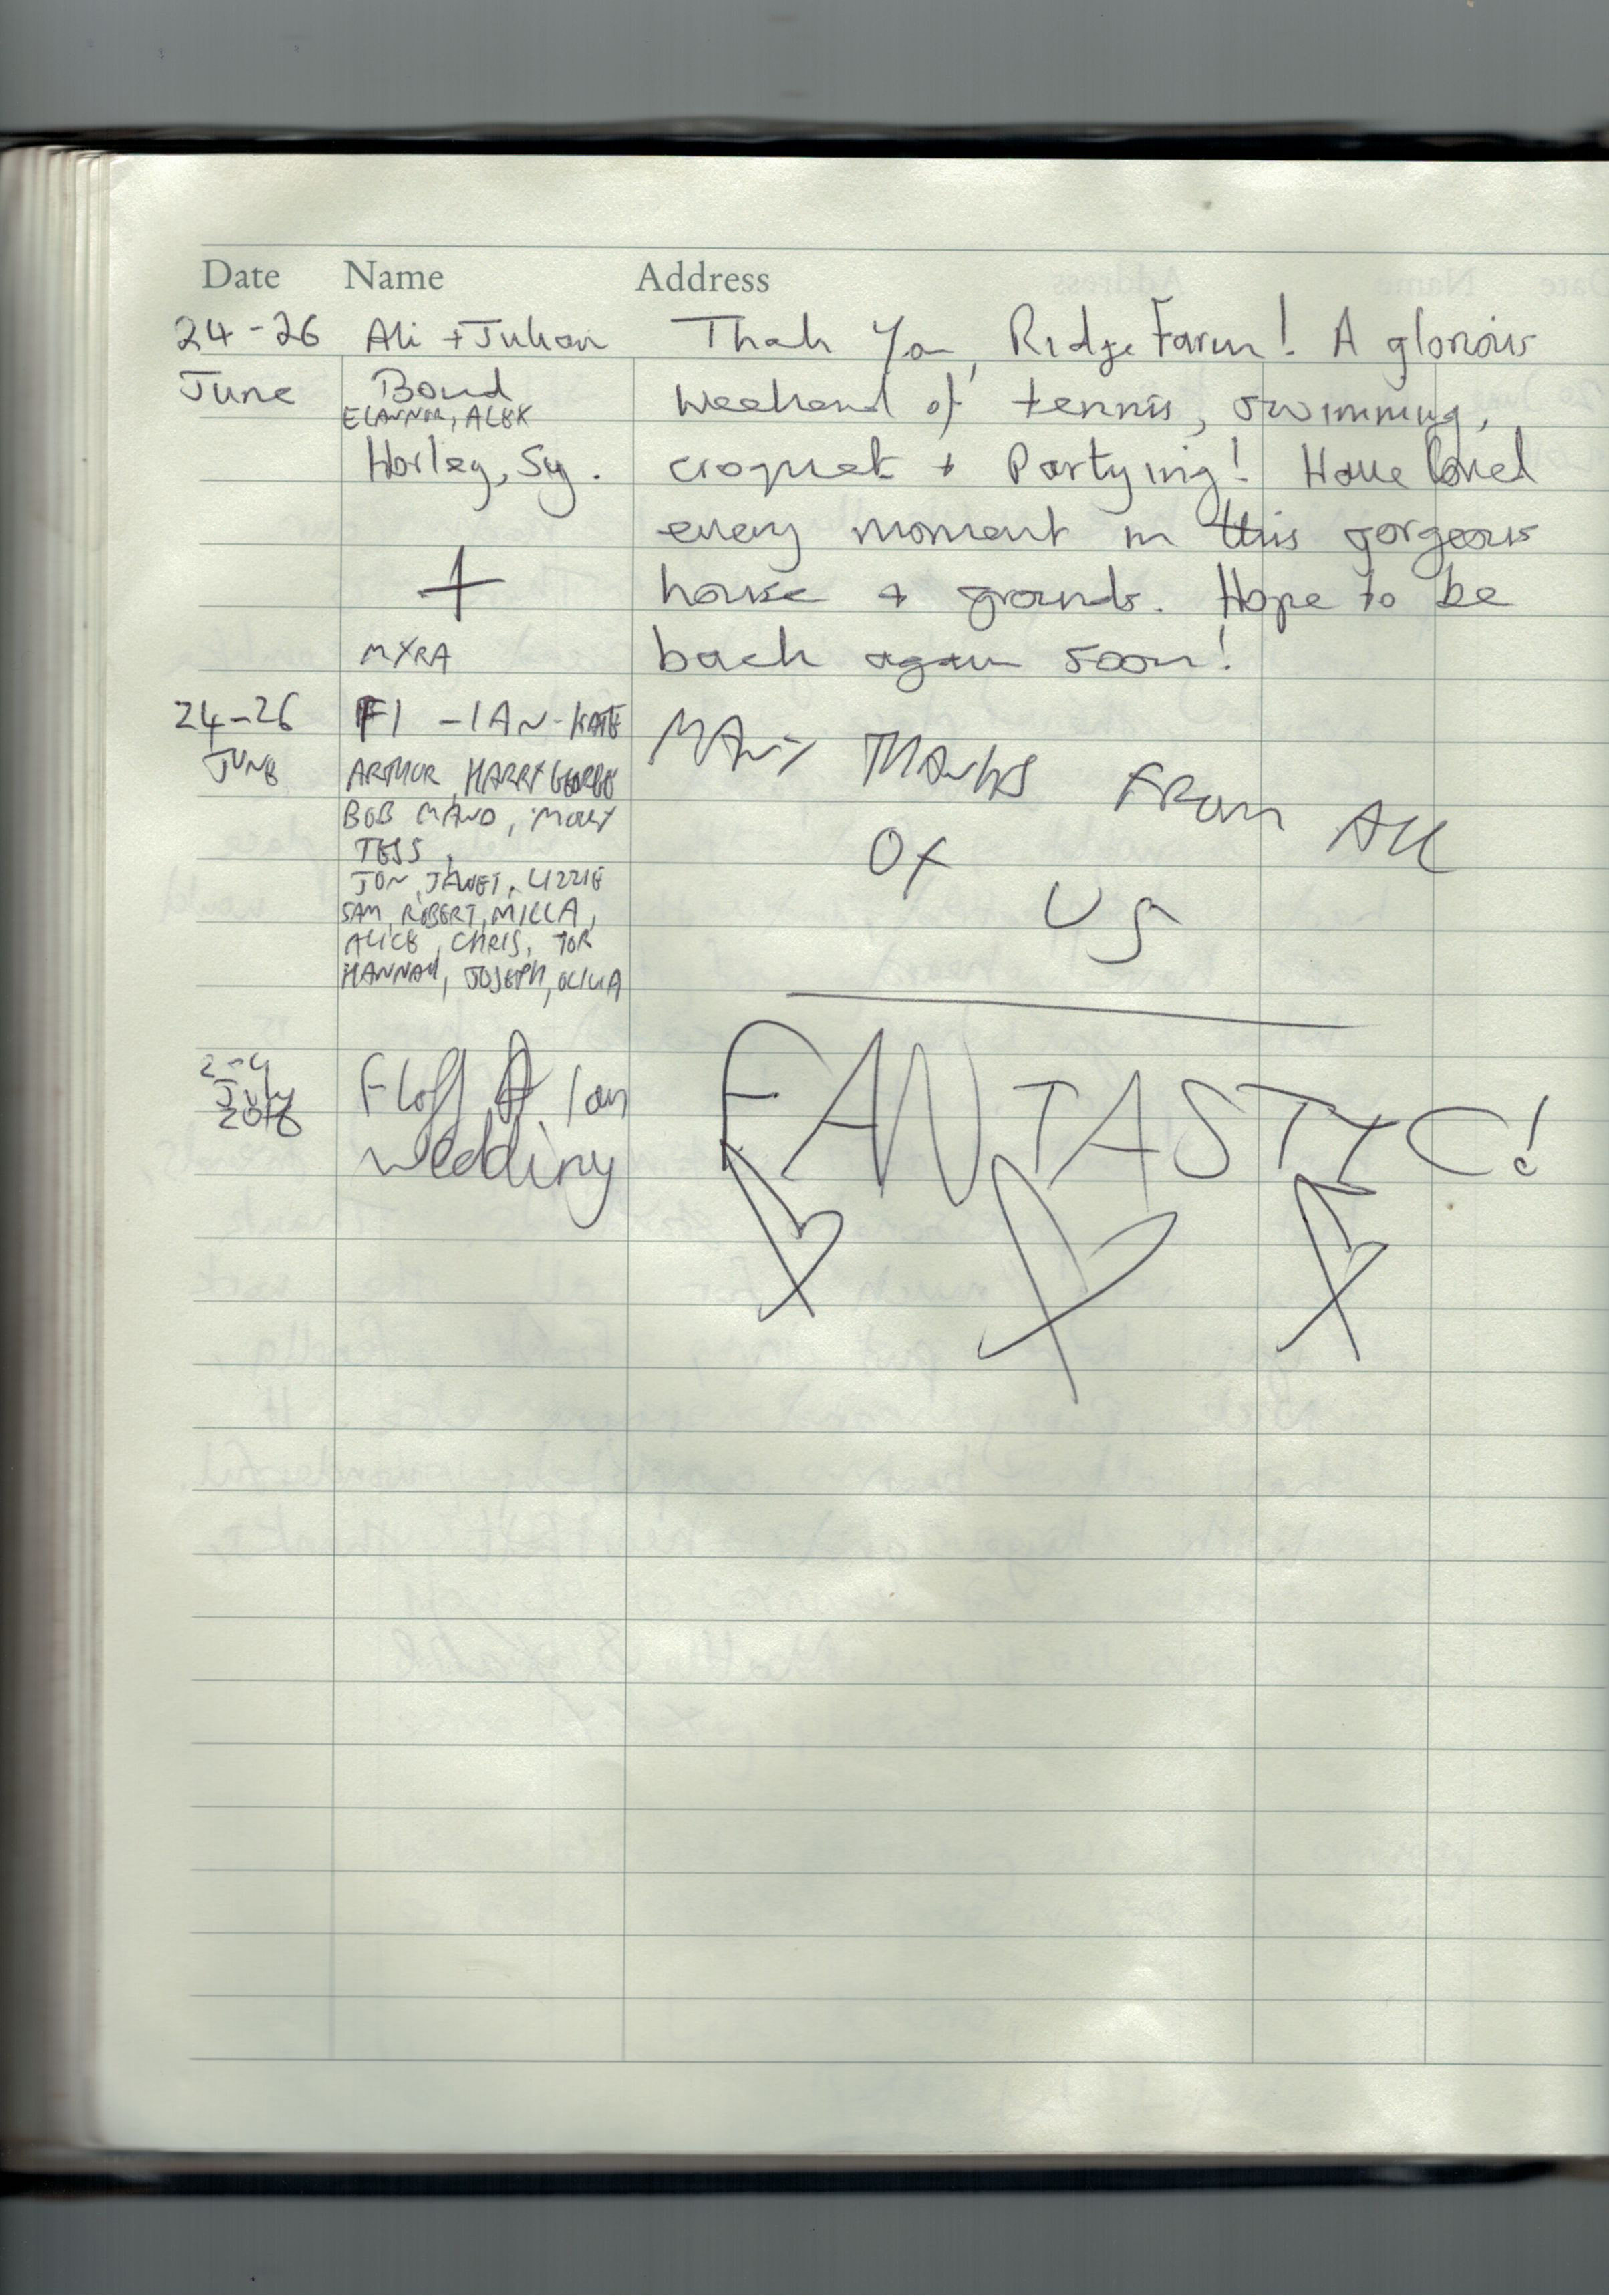 Date Name Address
24-26 Ali + Julian Thank you, Ridge Farm! A glorious
June Bond weekend of tennis, swimming,
ELANNOR, ALEX
Horley, Sy. croquet + Partying! Have loved
every moment in this gorgeous
+ house + grounds. Hope to be
MYRA back again soon!
24-26 FI - IAN - KATE MANY THANKS FROM ALL
JUNE ARTHUR, HARRY GEORGE
BOB MAWD, MOLLY OF
TESS,
JON, JANET, LIZZIE US
SAM, ROBERT, MILLA,
ALICE, CHRIS, TOR
HANNAH, JOSEPH, OLIVIA
2-4 Floff & Ian FANTASTIC!
July
2016 wedding